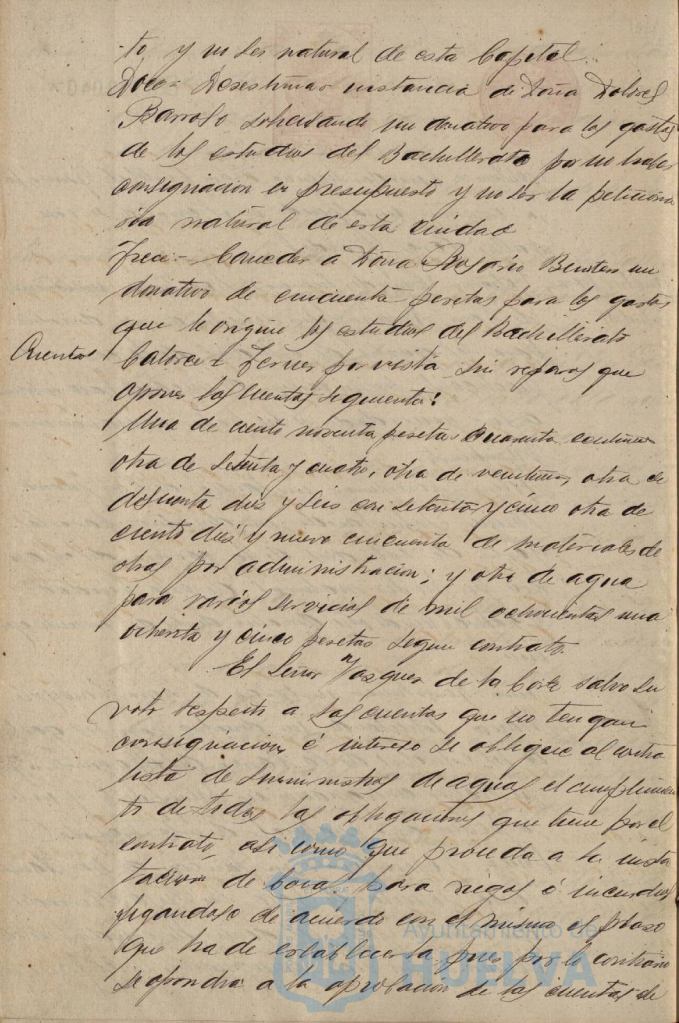 to y no ser natural de esta Capital.
Doce = Desestimar instancia de Doña Dolores
Barroso solicitando un donativo para los gastos
de los estudios del Bachillerato por no haber
consignacion en presupuesto y no ser la peticiona
ria natural de esta ciudad
Trece = Conceder a Doña Rosario Benitez un
donativo de cincuenta pesetas para los gastos
que le origine los estudios del Bachillerato
Cuentas
Catorce = Tener por vista sin reparos que
oponer las cuentas siguientes:
Una de ciento noventa pesetas cuarenta centimos
otra de setenta y cuatro, otra de otra de
dies y seis con setenta y cinco otra de
ciento dies y nueve cincuenta de materiales de
obras por administracion; y otra de agua
para varios servicios de mil ochocientas una
ochenta y cinco pesetas segun contrato.
El Señor Vazquez de la Corte salvo su
voto respecto a las cuentas que no tengan
consignacion é intereso se obligue al contra
tista de suministros de aguas el cumplimien
to de todas las obligaciones que tiene por el
contrato, asi como que proceda a la insta
lacion de bocas para riegos é incendios
fijandose de acuerdo con el mismo el plazo
que ha de establecerla pues por lo contrario
se opondra a la aprobacion de las cuentas de
Ayuntamiento de
HUELVA